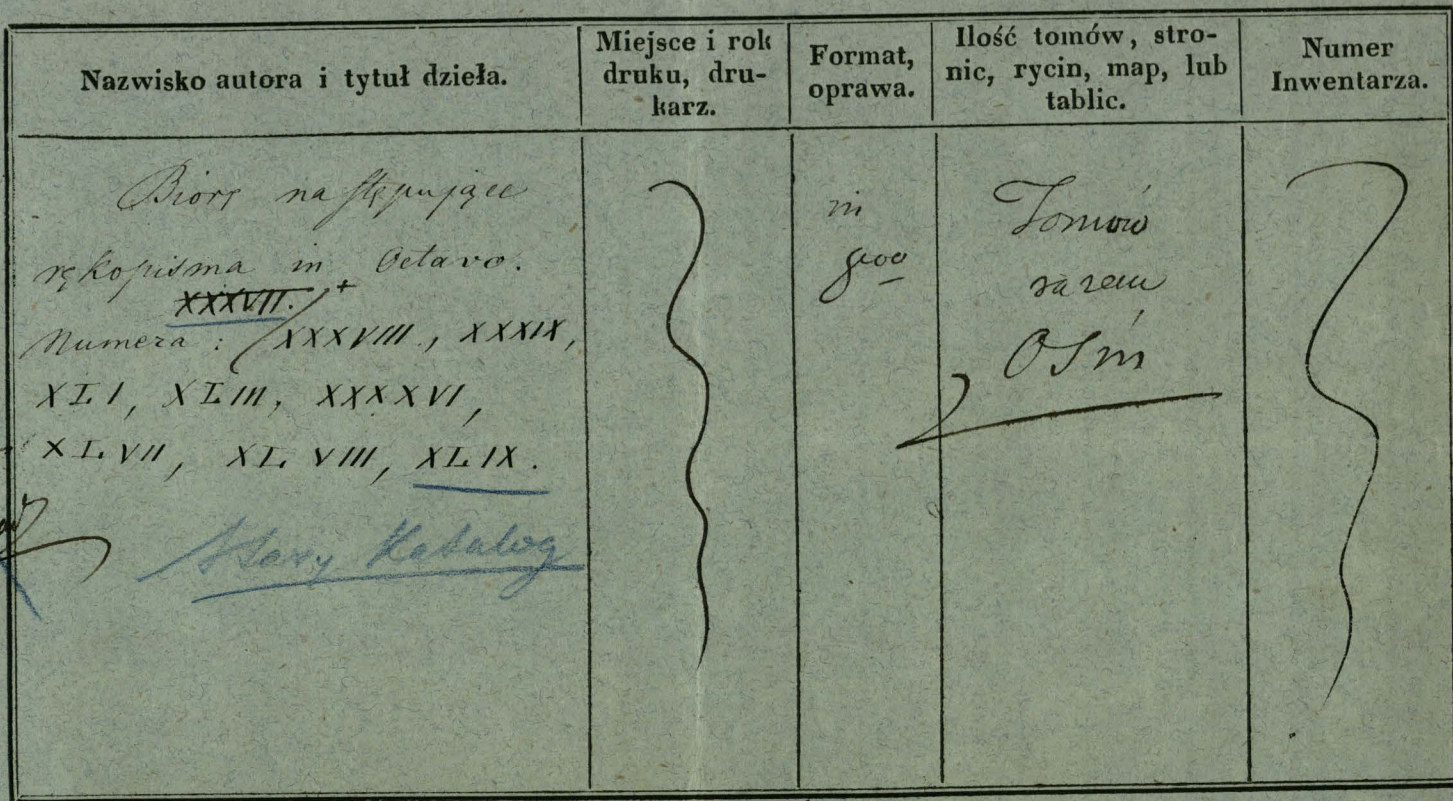 Nazwisko autora i tytuł dzieła.
Miejsce i rok
druku, dru-
karz.
Format,
oprawa.
Ilość tomów, stro-
nic, rycin, map, lub
tablic.
Numer
Inwentarza.
Biorę następujące
rękopisma in Octavo.
XXXVII. +
Numera: XXXVIII., XXXIX,
XLI, XLIII, XXXXVI,
XLVII, XLVIII, XLIX.
Stary Katalog
in
8voo
Tomów
razem
Ośm